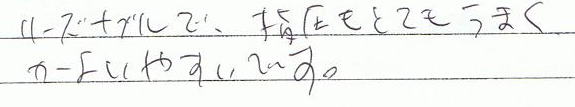 リーズナブルで、指圧もとてもうまく
かよいやすいです。